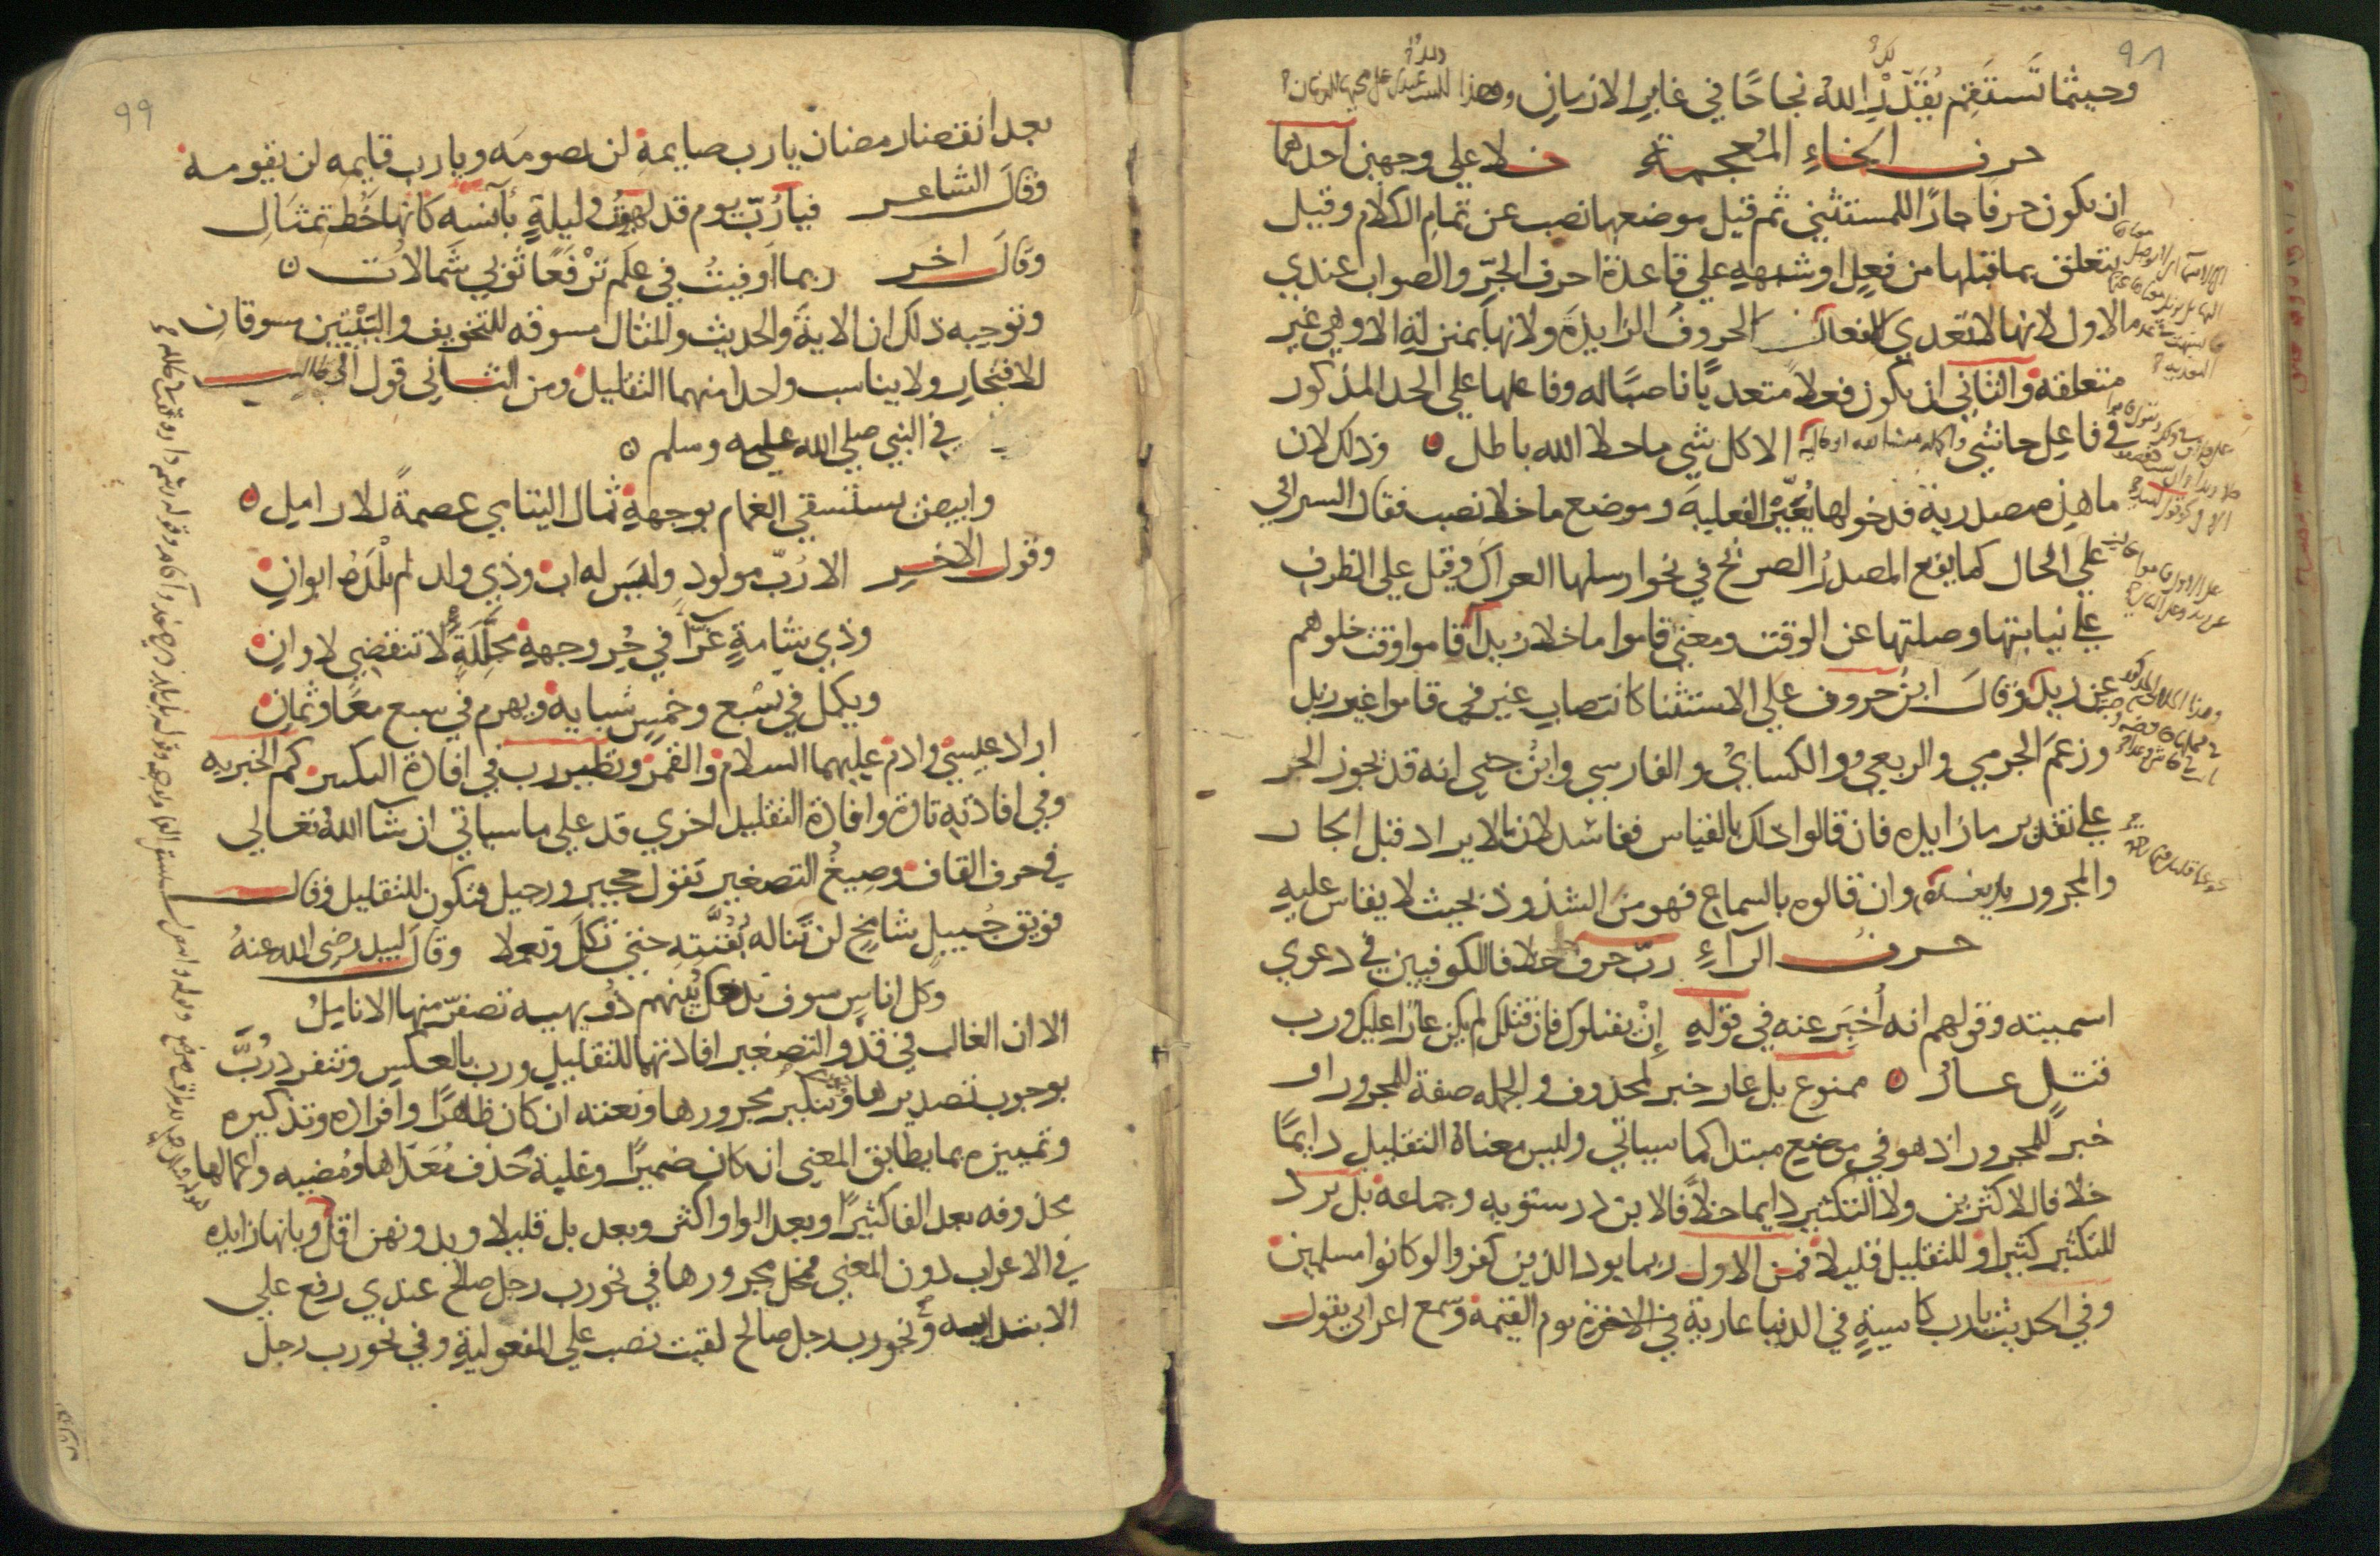 ٩٨
وحيثما تَستَقِم يُقَدِّرْ لكَ اللهُ نجاحًا في غابِرِ الازمانِ وهذا البيت
حرف الخاءِ المُعجمة خلا علي وجهين احدهما
ان يكون حرفا جارًا للمستثني ثم قيل موضعها نصب عن تمامِ الكلام وقيل
يتعلق بما قبلها من فعلٍ او شبههِ علي قاعدة احرف الجرِّ والصواب عندي
الاول لانها لا تعدي الافعال
الحروف الزايدة ولانها بمنزلةِ الا وهي غير
متعلقه والثاني ان يكون فعلاً متعديًا ناصبًا له وفاعلها علي الحد المذكور
في فاعِل حاشي الا كل شي ما خلا الله باطل ٥ وذلك لان
ما هذه مصدرية فدخولها يُعيّنُ الفعليةَ وموضع ما خلا نصب فقال السيرافي
علي الحال كما يقع المصدرُ الصريح في نحو ارسلها العراك وقيل علي الظرف
علي نيابتها وصلتها عن الوقت ومعني قاموا ما خلا زيدا قاموا وقت خلوهم
عن زيد وقالَ ابنُ خروف علي الاستثنا كانتصابِ غير في قاموا غير زيد
وزعمَ الجرمي والربعي والكسايُ والفارسي وابنُ جني انه قد يجوز الجر
علي تقدير ما زايده فان قالوا ذلك بالقياس ففاسد لان ما لا يزاد قبل الجار
والمجرور بل بعده وان قالوه بالسماعِ فهو من الشذوذ بحيث لا يقاس عليهِ
حرف الرآءِ ربّ حرف خلافا للكوفيين في دعوي
اسميته وقولهم انه أُخبِر عنه في قولهِ إنْ يقتلوك فان قتلك لم يكن عارًا عليك ورب
قتل عار ٥ ممنوع بل عار خبر لمحذوف والجمله صفة للمجرور او
خبرً للمجرور اذ هو في موضع مبتدا كما سياتي وليس معناهُ التقليل دايمًا
خلافا للاكثرين ولا التكثير دايما خلافًا لابن درستويه وجماعه بل يرد
للتكثير كثيرا وللتقليل قليلا فمن الاول ربما يود الذين كفروا لو كانوا مسلمين
وفي الحديث يا رب كاسيةٍ في الدنيا عاريةٍ في الاخرة يوم القيمة وسمع اعرابي يقول
٩٩
بعد انقضا رمضان يا رب صايمه لن يصومَه ويا رب قايمه لن يقومه
وقالَ الشاعر فيا رُبّ يوم قد لهوتُ وليلةٍ بآنسه كانها خَط تمثالِ
وقالَ اخر ربما اَوفيتُ في علَمٍ تَرْفَعًا ثوبي شَمالاتُ ٥
وتوجيه ذلك ان الايةَ والحديث والمثال مسوقه للتخويف والبَيْتِين مسوقانِ
للافتخارِ ولا يناسب واحدا منهما التقليل ومن الثاني قول ابي طالب
في النبي صلي الله عليه وسلم ٥
وابيض يستسقي الغمام بوجههِ ثمال اليتامي عصمةً للارامل ٥
وقول الاخر الا رُبّ مولودٍ وليَس له اب وذي ولد لم يلْدَهُ ابوانِ
وذي شامةٍ غَرّا في حُر وجههِ مجلَّلَةٍ لا تنقضي لاوانِ
ويكمل في تسْع وخمسٍ شبابه ويهرم في سبع معًا وثمانِ
اراد عيسي وادم عليهما السلام والقمر ونظير رب في افادة التكثير كم الخبريه
وفي افادتهِ تارة وافادة التقليل اخري قد علي ما سياتي ان شا الله تعالي
في حرف القاف وصِيغُ التصغير تقول حجير ورجيل فتكون للتقليل وقال
فويق جُبيلٍ شامخٍ لن تناله بقُنَّتهِ حتي تكلَّ وتعملا وقالَ لبيد رضي الله عنهُ
وكل اناسٍ سوف تدخل بينهم دُويهيه تصفرّ منها الاناملُ
الا ان الغالب في قد والتصغير افادتهما للتقليل ورب بالعكسِ وتنفرد رُبَّ
بوجوب تصديرها وتنكير مجرورها ونعته ان كان ظاهرًا وافراده وتذكيره
وتمييزه بما يطابق المعني ان كان ضميرًا وغلبة حَذف مُعَدّاها ومُضيه واعمالها
محذوفه بعد الفا كثيرًا وبعد الواو اكثر وبعد بل قليلا وبدونهن اقل وبانها زايده
في الاعراب دون المعني فمحل مجرورها في نحو رب رجل صالح عندي رفع علي
الابتدايه وفي نحو رب رجل صالح لقيت نصب علي المفعوليةِ وفي نحو رب رجل